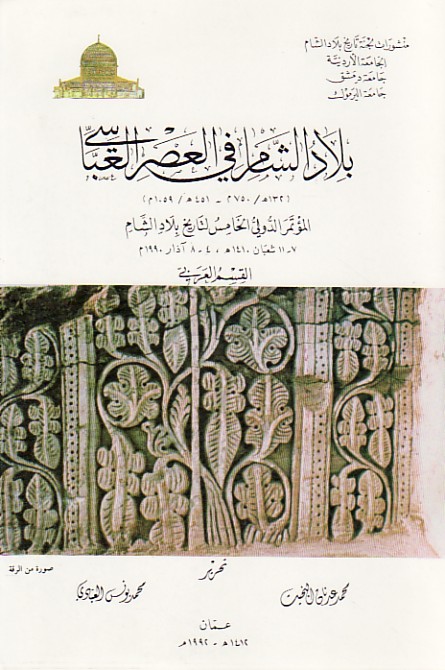 منشورات لجنة تاريخ بلاد الشام
الجامعة الأردنية
جامعة دمشق
جامعة اليرموك
بلاد الشام في العصر العباسي
(١٣٢هـ/٧٥٠م - ٤٥١هـ/١٠٥٩م)
المؤتمر الدولي الخامس لتاريخ بلاد الشام
٧-١١ شعبان ١٤١٠هـ، ٤-٨ آذار ١٩٩٠م
القسم العربي
صورة من الرقة
تحرير
محمد عدنان البخيت
محمد يونس العبادي
عمان
١٤١٢هـ - ١٩٩٢م